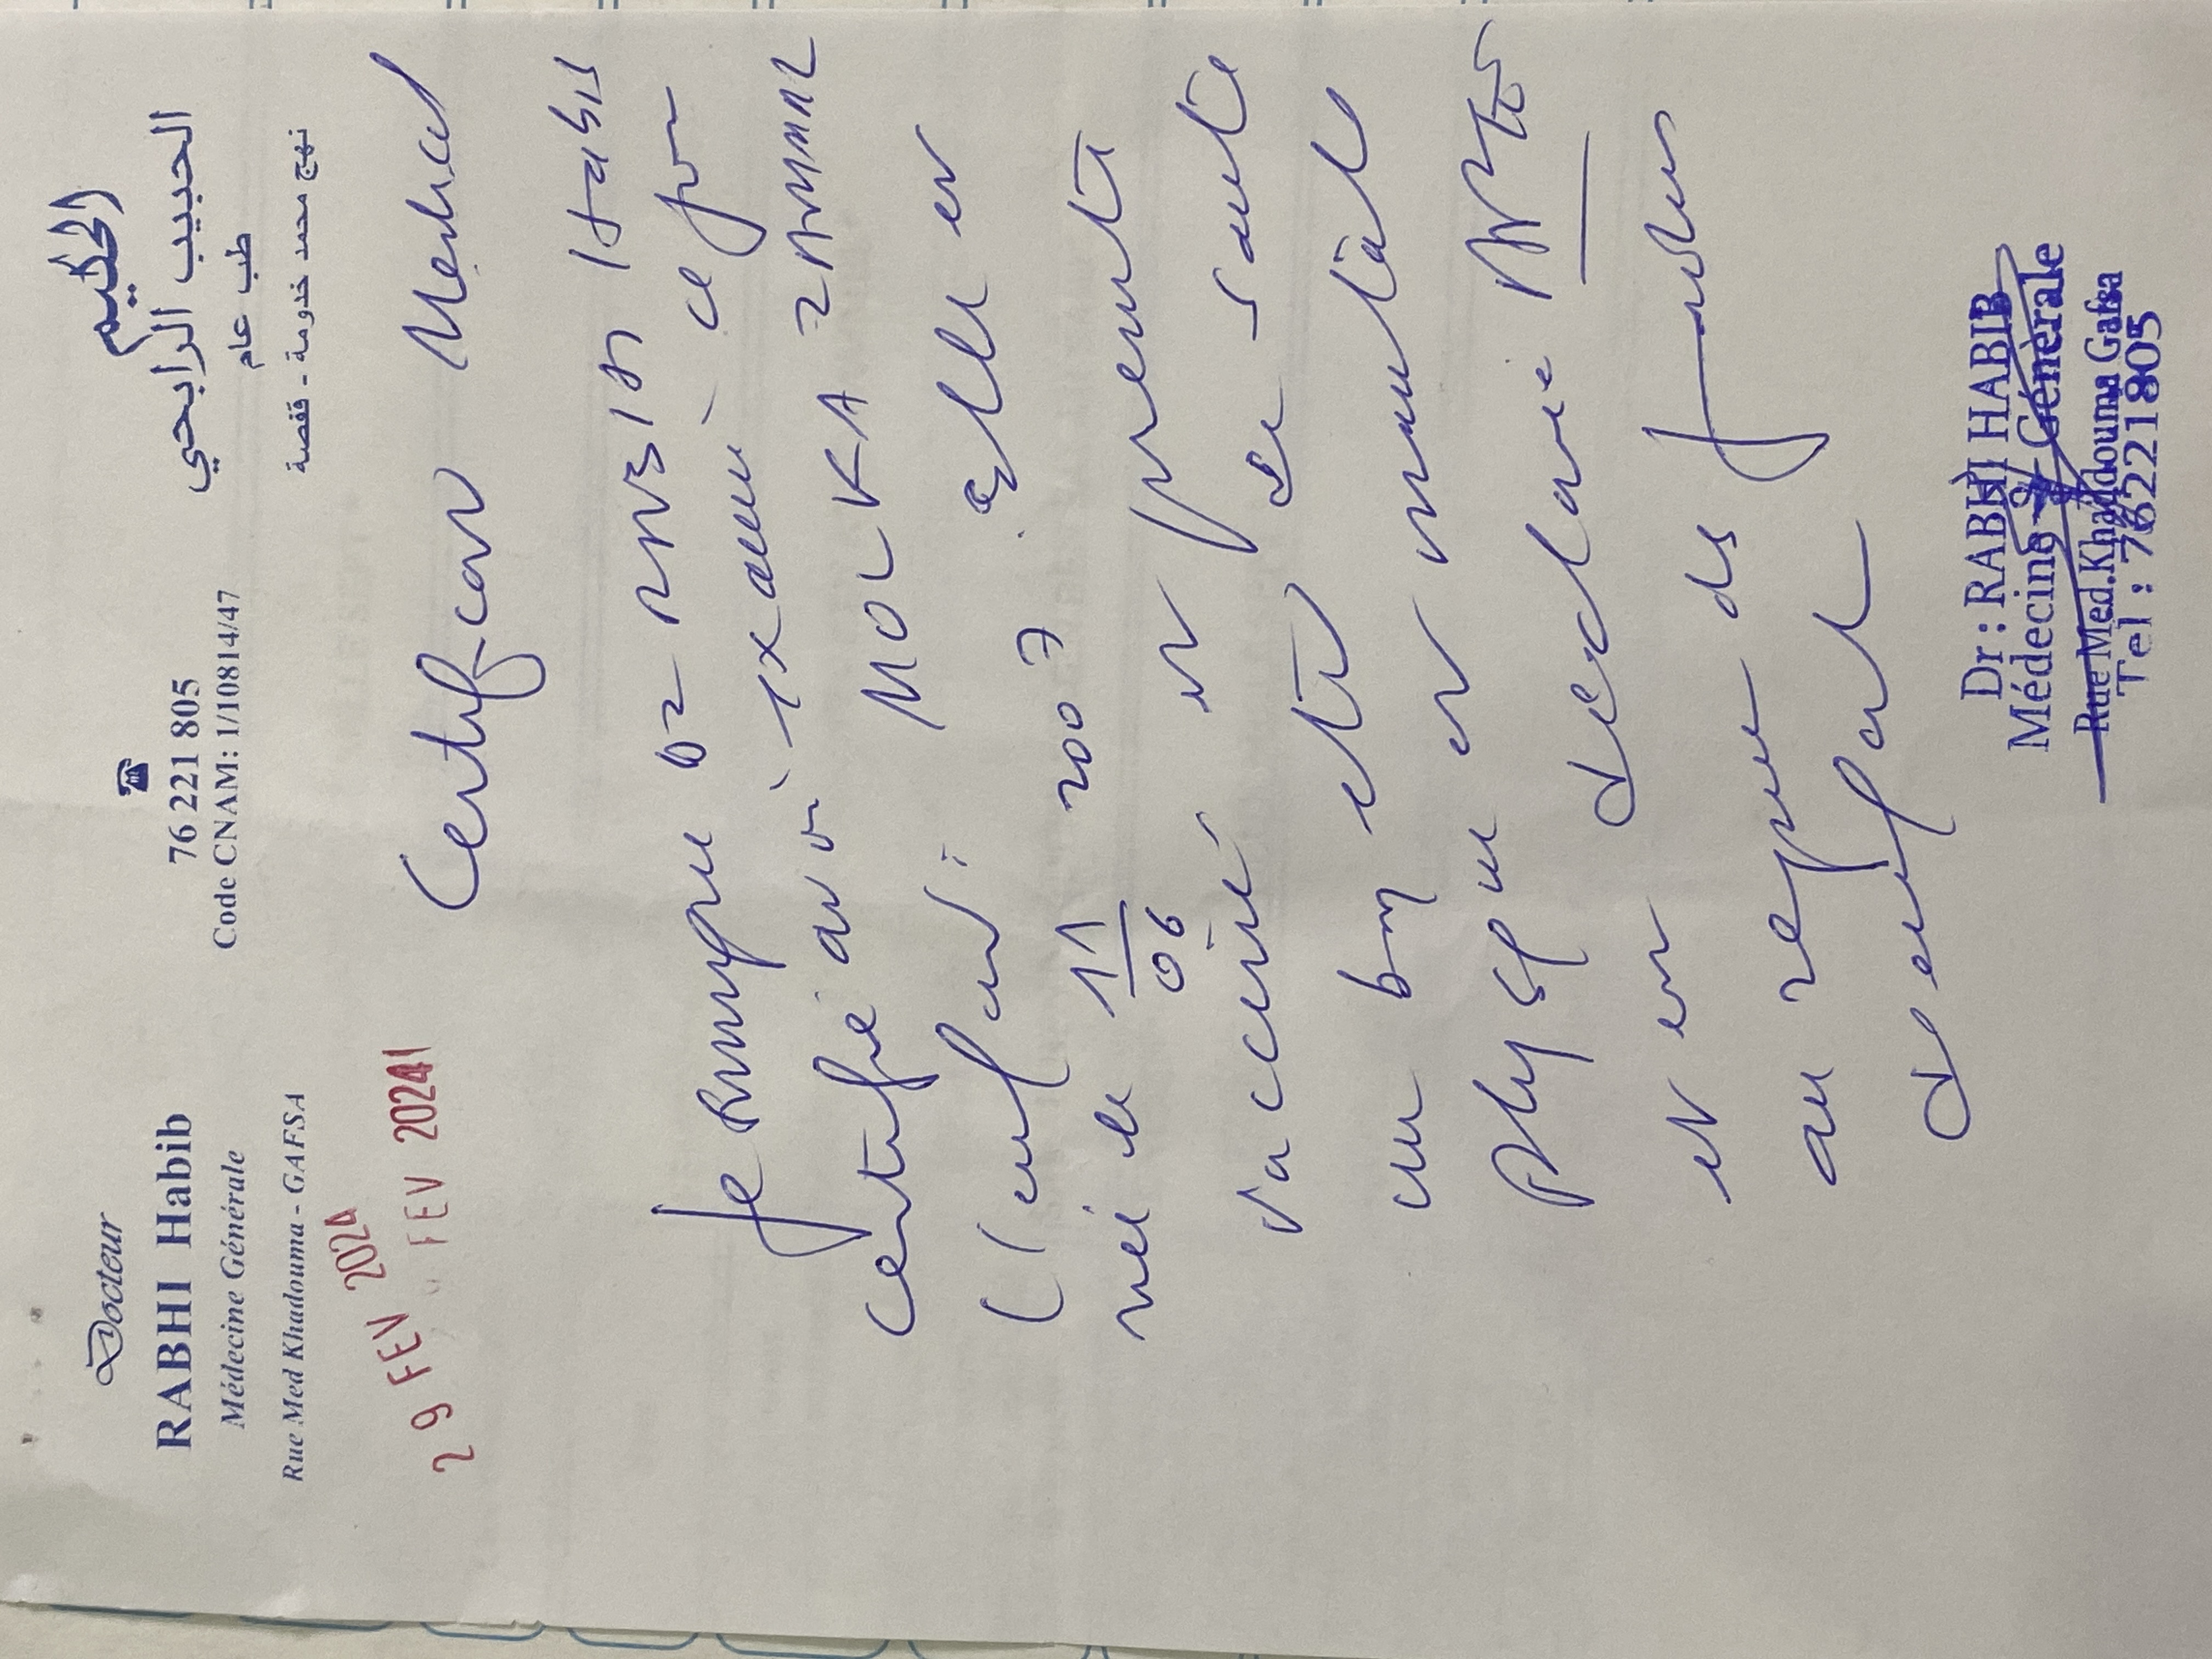 Docteur
RABHI Habib
Médecine Générale
Rue Med Khadouma - GAFSA
☎
76 221 805
Code CNAM: 1/10814/47
الحكيم
الحبيب الرابحي
طب عام
نهج محمد خدومة - قفصة
29 FEV 2024
FEV 2024
Certificat Medical
Je Habib
certifie avoir examiné ce jour
l'enfant : MOLKA
née le 11/06 2007. Elle est
vaccinée, et présente
un bon état de santé
physique et mentale
et est declarée
au des
Dr : RABHI HABIB
Médecine Génèrale
Rue Med.Khadouma Gafsa
Tel : 76221805